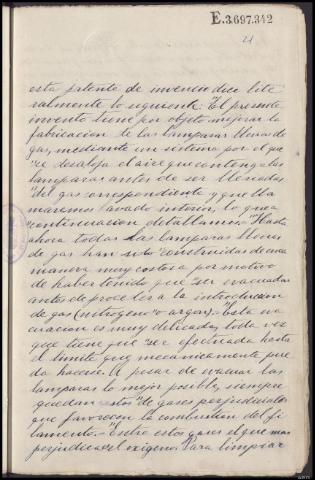 E.3.697.342
21
esta patente de invencio dice lite
ralmente lo siguiente: El presente
invento tiene por objeto mejorar la
fabricacion de las lamparas llenas de
gas, mediante un sistema por el que
se desaloja el aire que contengan las
lamparas antes de ser llenadas
del gas correspondiente y que lla
maremos lavado interior, lo que a
continuacion detallamos.= Hasta
ahora todas las lamparas llenas
de gas han sido construidas de una
manera muy costosa por motivo
de haber tenido que ser evacuadas
antes de proceder a la introduccion
de gas (nitrogeno o argon).= Esta va
cuacion es muy delicada, toda vez
que tiene que ser efectuada hasta
el limite que mecanicamente pue
da hacerse. A pesar de evacuar las
lamparas lo mejor posible, siempre
quedan restos de gases perjudiciales
que favorecen la combustion del fi
lamento.= Entre estos gases el que mas
perjudica es el oxigeno. Para limpiar